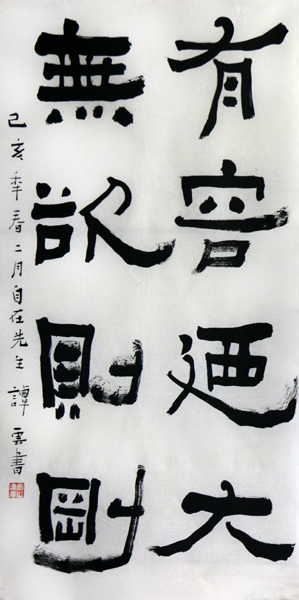 有容廼大
無欲則剛
己亥年春二月自在先生譚雲書